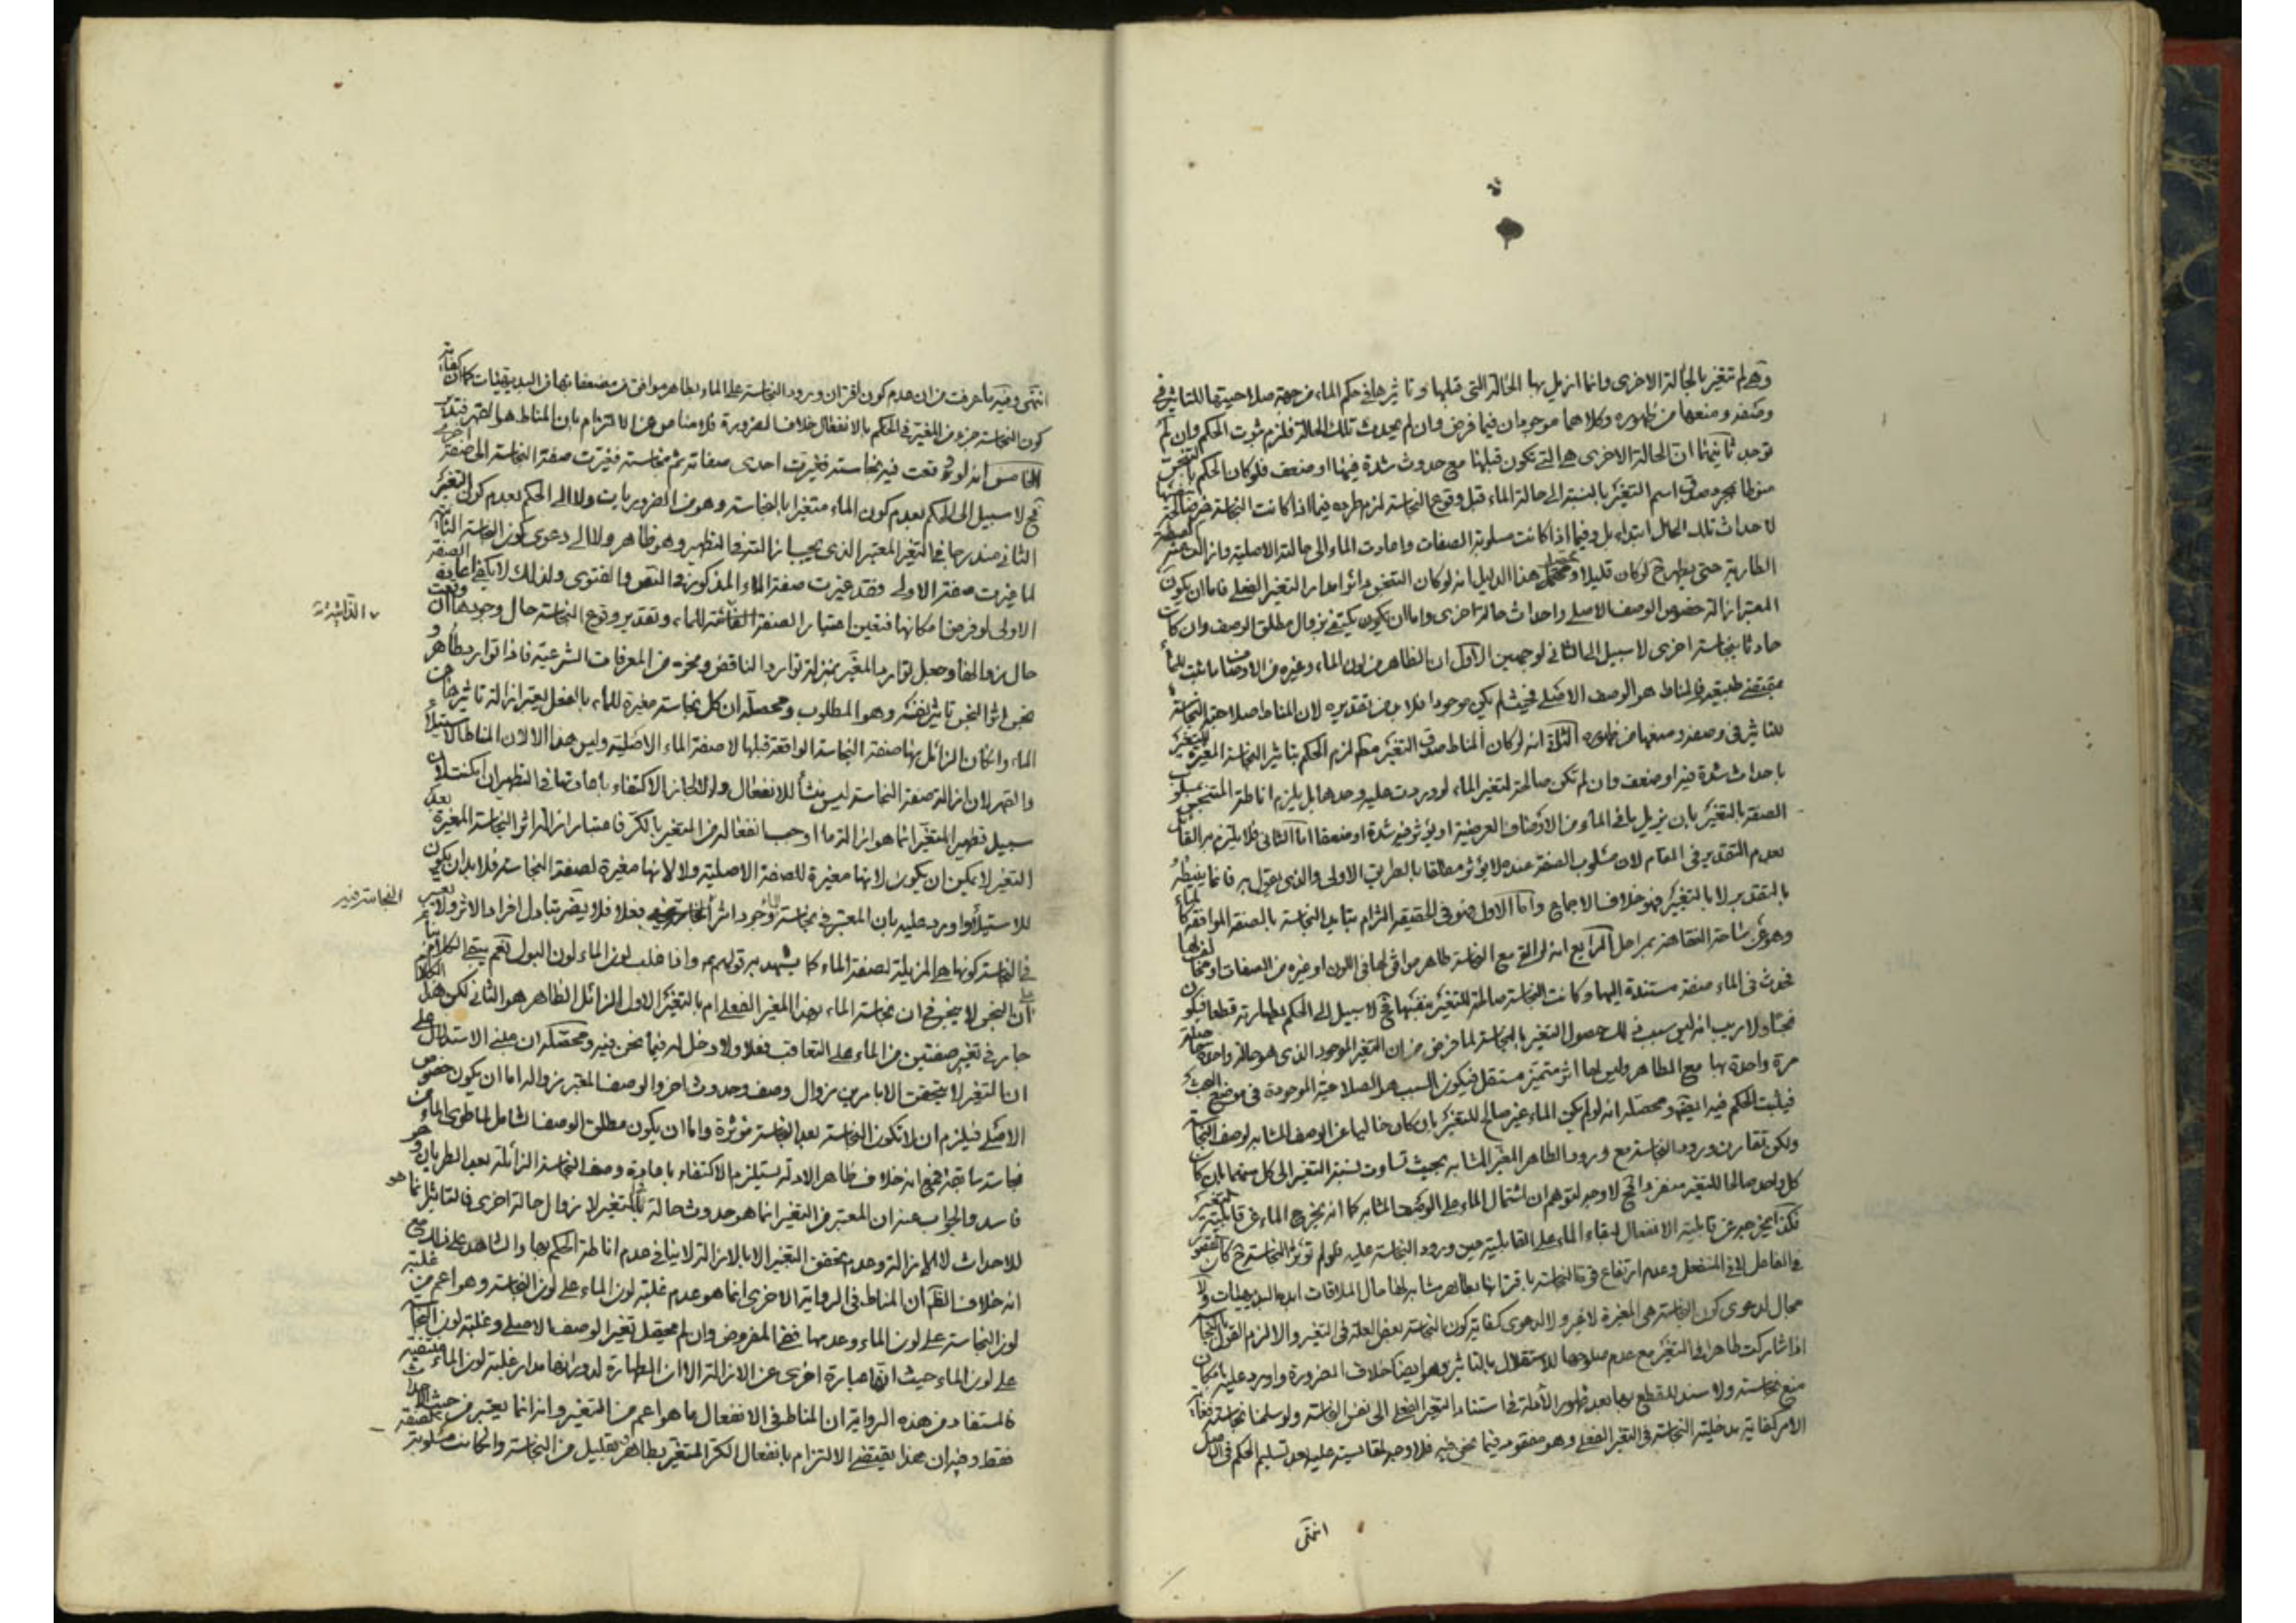 وهي لم تتغير بالحالة الاخرى وانما ازيل بها الحالة التي قبلها وتاثيرها في حكم الماء من جهة صلاحيتها للتاثير في
وصفه ومنعها من ظهوره وكلاهما موجودان فيما فرض وان لم يحدث تلك الحالة فلزم ثبوت الحكم وان لم
توجد ثانيها ان الحالة الاخرى هي التي تكون قبلها مع حدوث شدة فيها او ضعف فلو كان الحكم بالتنجس
منوطا بمجرد صدق اسم التغير بالنسبة الى حالة الماء قبل وقوع النجاسة لزم طرده فيما اذا كانت النجاسة
لاحداث تلك الحال ابتداء بل وفيما اذا كانت مسلوبة الصفات وعادت الماء الى حالته الاصلية وازالت عنه
الطارية حتى يطرح لو كان قليلا ومحصل هذا الدليل انه لو كان التنجس دائرا مدار التغير الفعلي فاما ان يكون
المعتبر ازالة خصوص الوصف الاصلي واحداث حالة اخرى واما ان يكون يكتفي بزوال مطلق الوصف وان كان
حادثا بنجاسة اخرى لا سبيل الى الثاني لوجهين الاول ان الظاهر من لون الماء وغيره من الاوصاف ما ثبت للماء
بمقتضى طبيعته فالمناط هو الوصف الاصلي فحيث لم يكن موجودا فلا بد من تقديره لان المناط صلاحية النجاسة
للتاثير في وصفه ومنعها من ظهوره الثاني انه لو كان المناط صدق التغير لزم الحكم بتاثير النجاسة المغيرة
باحداث شدة فيه او ضعف وان لم تكن صالحة لتغير الماء لو وردت عليه وحدها بل يلزم اناطة التنجس بمسلوب
الصفة بالتغير بان يزيل باقي الماء من الاوصاف العرضية او يؤثر فيه شدة او ضعفا اما الثاني فلا يلتزم به القائل
بعدم التقدير في المقام لان مسلوب الصفة عنده لا يؤثر مطلقا بالطريق الاولى والذي يقول به فانما ينيطه
بالتقدير لا بالتغير فهو خلاف الاجماع واما الاول فهو في الحقيقة التزام بتاييد النجاسة بالصفة الموافقة
وهو عن ساحة الفقاهة بمراحل الرابع انه لو القي مع النجاسة طاهر موافق لها في اللون او غيره من الصفات
فحدث في الماء صفة مستندة اليها وكانت النجاسة صالحة للتغير بنفسها فح لا سبيل الى الحكم بطهارته قطعا فيكون
نجسا ولا ريب انه ليس سبب ذلك حصول التغير بالنجاسة لما فرض من ان التغير الموجود الذي هو حالة واحدة
مرة واحدة بها مع الطاهر وليس لها اثر متميز مستقل فيكون السبب هو الصلاحية الموجودة في موضع البحث
فيثبت الحكم فيه ايضا ومحصله انه لو لم يكن الماء غير صالح للتغير بان كان خاليا عن الوصف المشابه لوصف النجاسة
ولكن تقارن ورود النجاسة مع ورود الطاهر المغير المشابه بحيث تساوت نسبة التغير الى كل منهما بان كان
كل واحد صالحا للتغير منفردا فح لا وجه لتوهم ان اشتمال الماء على الوصف المشابه كما انه يخرج الماء عن قابلية التغير
فكذا يخرجه عن قابلية الانفعال لبقاء الماء على القابلية حين ورود النجاسة عليه فلو لم تؤثر النجاسة ح كان القصور
في الفاعل لا في المنفعل وعدم ارتفاع قوة النجاسة باقترانها بطاهر مشابه لها حال الملاقات ابده البديهيات ولا
مجال لدعوى كون النجاسة هي المغيرة لا غير ولا لدعوى كفاية كون النجاسة بعض العلة في التغير والا لزم القول بالنجاسة
اذا شاركت طاهرا في التغير مع عدم صلوحها للاستقلال بالتاثير وهو ايضا خلاف الضرورة واورد عليه بامكان
منع نجاسته ولا سند للقطع بها بعد ظهور الادلة في استناد التغير الفعلي الى نفس النجاسة ولو سلمنا نجاسته
الامر كفاية مدخلية النجاسة في التغير الفعلي وهو مفقود فيما نحن فيه فلا وجه لمقايسته عليه بعد تسليم الحكم في الاصل
انتهى
انتهى وفيه ما عرفت من ان عدم كون اقتران ورود النجاسة على الماء بطاهر موافق من مضعفاتها من البديهيات كما ان كفاية
كون النجاسة جزء من المغير في الحكم بالانفعال خلاف الضرورة فلا مناص من الالتزام بان المناط هو القهر فتدبر
الخامس انه لو وقعت فيه نجاسة فغيرت احدى صفاته ثم نجاسة فغيرت صفة النجاسة الى صفة اخرى
فح لا سبيل الى الحكم بعدم كون الماء متغيرا بالنجاسة وهو من الضروريات ولا الى الحكم بعدم كون التغير
الثاني مندرجا في التغير المعتبر الذي يجب ازالته في التطهير وهو ظاهر ولا الى دعوى كون النجاسة الثانية
لما غيرت صفة الاولى فقد غيرت صفة الماء المذكورة في النص والفتوى ولذلك لا يكفي اعادة الصفة
الاولى لو فرض امكانها فتعين اعتبار الصفة الفائتة للماء وتقدير وقوع النجاسة حال وجودها
٧ الذاتية
حال زوالها وجعل توارد المغير بمنزلة توارد الناقض ونحوه من المعرفات الشرعية فاذا توارد طاهر و
نجس اثر النجس تاثير نفسه وهو المطلوب ومحصله ان كل نجاسة مغيرة للماء بالفعل يعتبر ازالة تاثيرها
الماء وان كان الزائل بها صفة النجاسة الواقعة قبلها لا صفة الماء الاصلية وليس هذا الا لان المناط الاستيلاء
والقهر لان ازالة صفة النجاسة ليس منشأ للانفعال ولو لا لجاز الاكتفاء باعادتها في التطهير ان امكنت لان
سبيل تطهير المتغير انما هو ازالة ما اوجب انفعاله من المتغير بالكر فاعتبار ازالة اثر النجاسة المغيرة بعد
التغير لا يمكن ان يكون لانها مغيرة للصفة الاصلية ولا لانها مغيرة لصفة النجاسة فلا بد ان يكون
للاستيلاء واورد عليه بان المعتبر في نجاسة الماء وجود اثر النجاسة فيه فعلا فلا يضر تبادل افراد الاثر ولا يعتبر
النجاسة فيه
في النجاسة كونها هي المزيلة لصفة الماء كما يشهد به قولهم واذا غلب لون الماء لون البول نعم يبقى الكلام
ان النجس لا ينجس فح ان نجاسة الماء بهذا المغير الفعلي ام بالتغير الاول الزائل الظاهر هو الثاني لكن هذا الكلام
جار في تغير صفتين من الماء على التعاقب فعلا ولا دخل له فيما نحن فيه ومحصله ان مبنى الاستدلال على
ان التغير لا يتحقق الا بامرين زوال وصف وحدوث اخر والوصف المعتبر زواله اما ان يكون خصوص
الاصلي فيلزم ان لا تكون النجاسة بعد النجاسة مؤثرة واما ان يكون مطلق الوصف الشامل لما طرى الماء من
نجاسة سابقة فمع انه خلاف ظاهر الادلة يستلزم الاكتفاء باعادة وصف النجاسة الزائلة بعد الطريان وهو
فاسد والجواب عنه ان المعتبر في التغير انما هو حدوث حالة بالتغير لا زوال حالة اخرى فالتاثير انما هو
للاحداث لا للازالة وعدم تحقق التغير الا بالازالة لا ينافي عدم اناطة الحكم بها والشاهد على ذلك مع
انه خلاف الظاهر ان المناط في الرواية الاخرى انما هو عدم غلبة لون الماء على لون النجاسة وهو اعم من غلبة
لون النجاسة على لون الماء وعدمها ففي المفروض وان لم يحصل تغير الوصف الاصلي وغلبة لون النجاسة
على لون الماء حيث انها عبارة اخرى عن الازالة الا ان الطهارة لدورانها مدار غلبة لون الماء منتفية
فالمستفاد من هذه الرواية ان المناط في الانفعال ما هو اعم من التغير وانه انما يعتبر من حيث احداث الصفة
فقط وفيه ان هذا يقتضي الالتزام بانفعال الكر المتغير بطاهر بقليل من النجاسة وان كانت مسلوبة